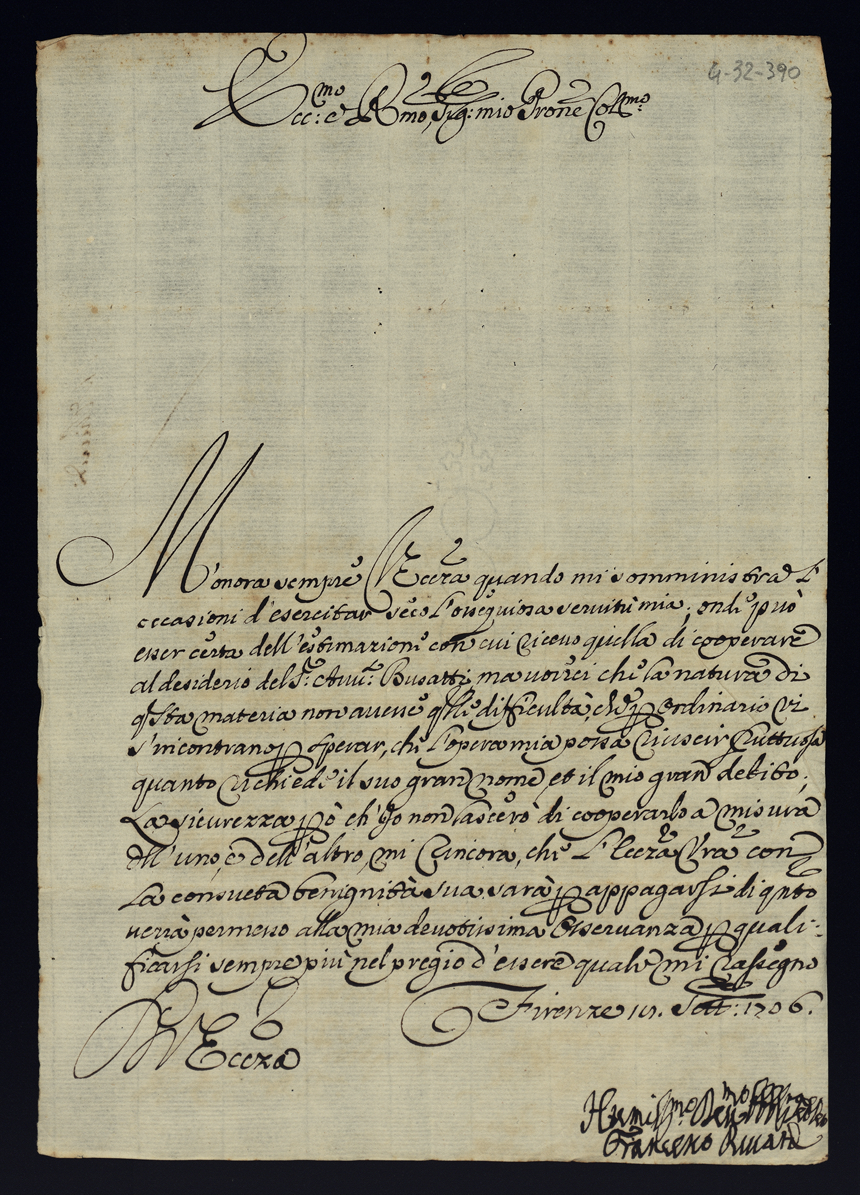 4-32-390
Ecc:mo e Rmo, Sig: mio Prone Colmo:
M'onora sempre V. Eccza quando mi somministra l'
occasioni d'esercitar seco l'ossequiosa servitù mia; onde può
esser certa dell'estimazione con cui ricevo quella di cooperare
al desiderio del Sr: Avv: Busatti, ma vorrei che la natura di
qsta materia non avesse qlle difficultà, che p ordinario vi
s'incontrano p sperar, che l'opera mia possa riuscir fruttuosa
quanto richiede il suo gran nome, et il mio gran debito;
La sicurezza pò ch'Io non lascerò di cooperarlo a misura
dll'uno, e dell'altro, mi rincora, che l'Eccza Vra con
la consueta benignità sua sarà p appagarsi di qnto
verrà permesso alla mia devotissima Osservanza p quali-
ficarsi sempre più nel pregio d'essere quale mi rassegno
Firenze Sett: 1706.
V Eccza
Humissmo Devmo
Francesco